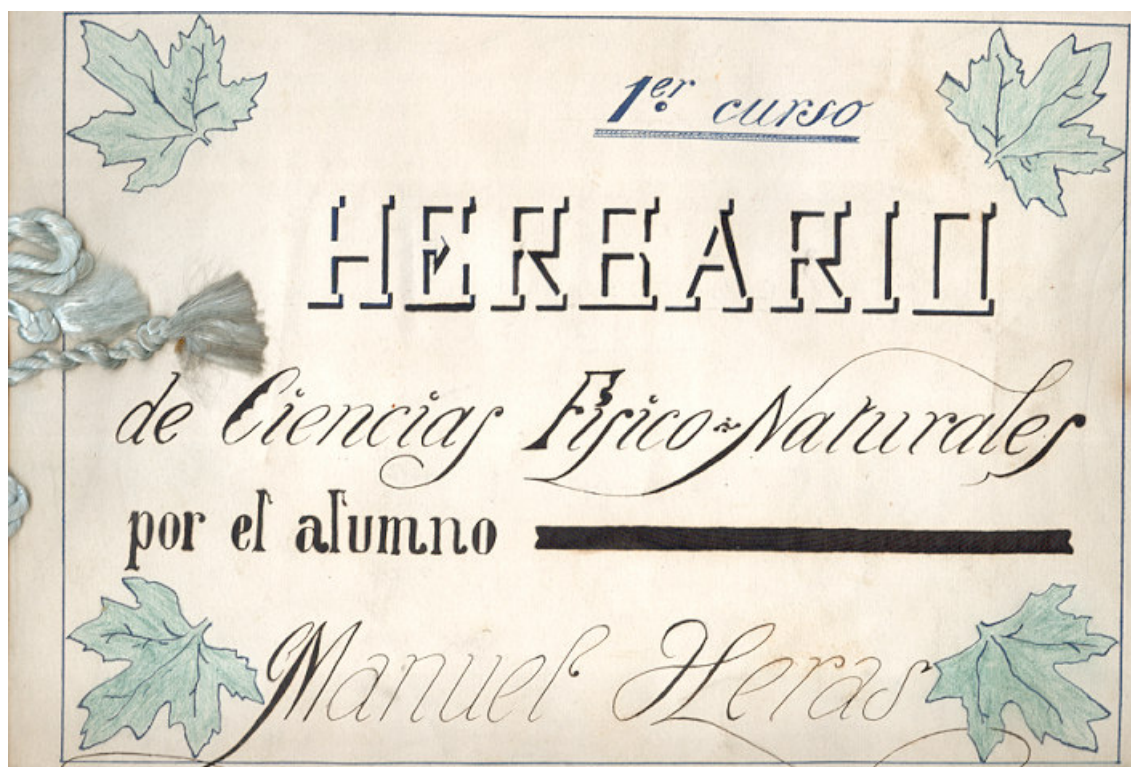 1.er curso
HERBARIO
de Ciencias Fisico-Naturales
por el alumno
Manuel Heras